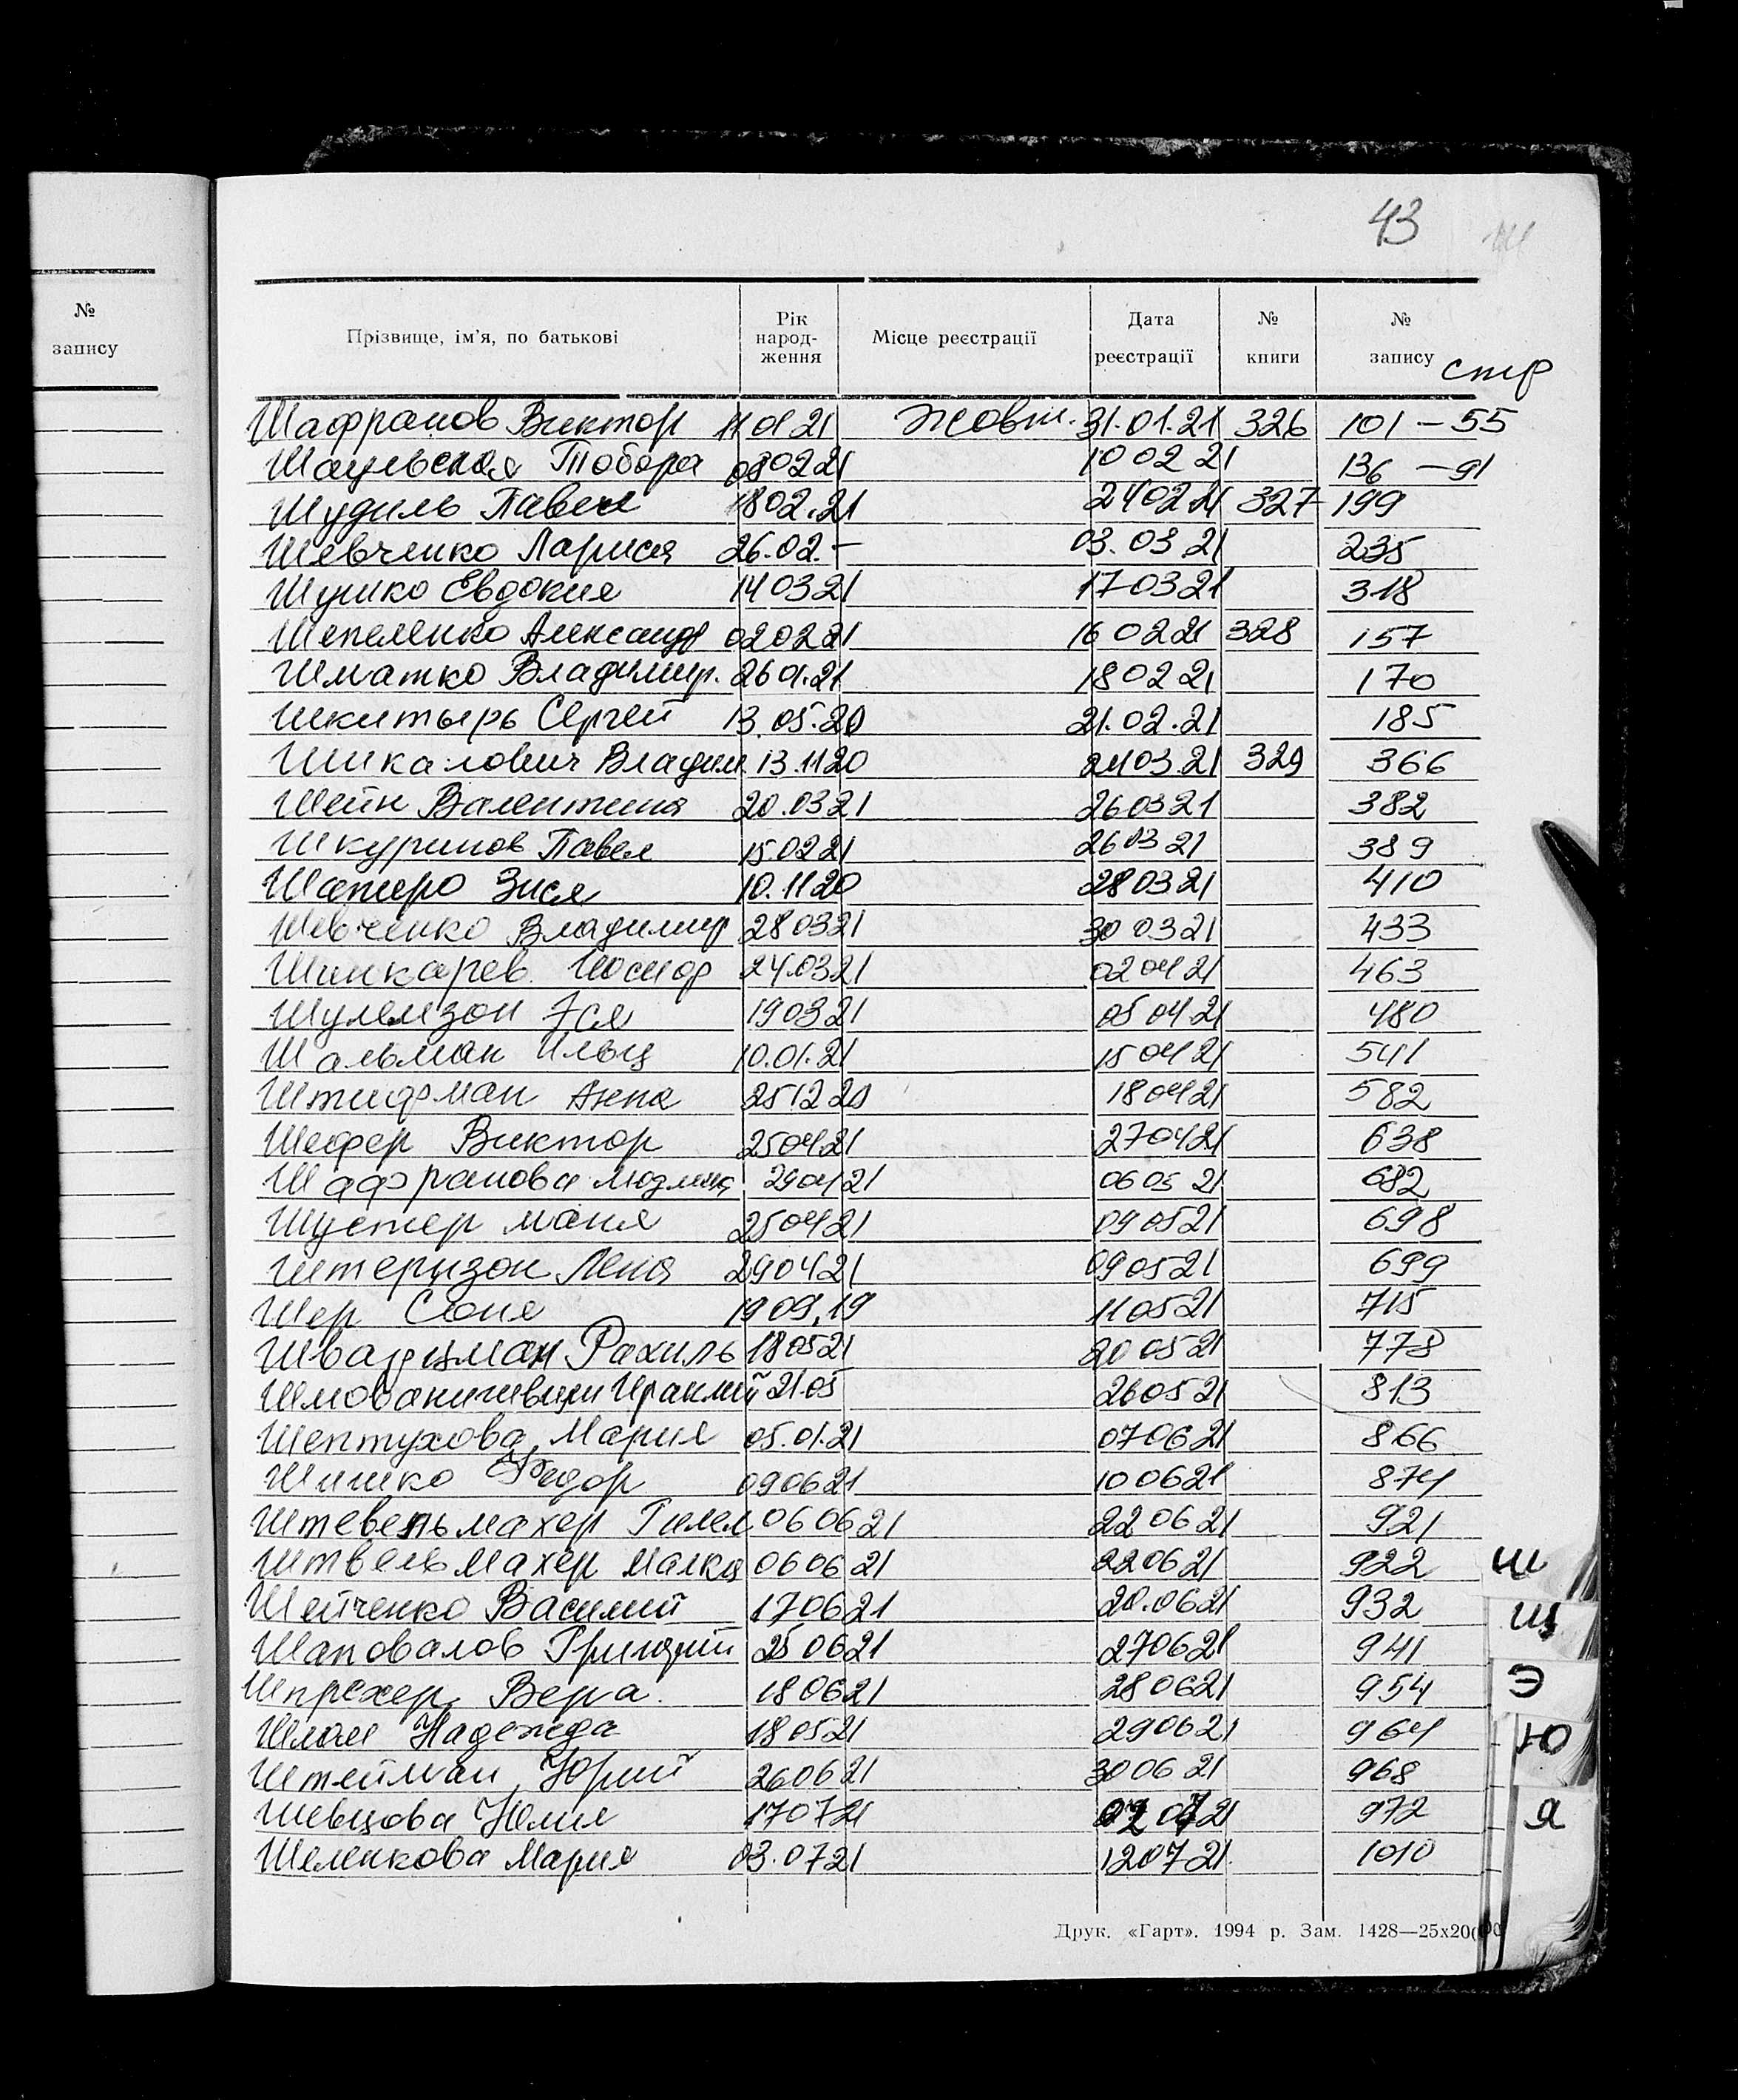 43
№
запису
Прізвище, ім'я, по батькові
Рік народ-ження
Місце реєстрації
Дата реєстрації
№ книги
№ запису
стр
Шафранов Виктор 11 01 21 Жовт. 31.01.21 326 101 – 55
Тобора 08 02 21 10 02 21 136 – 91
Шудиль Павел 18 02.21 24 02 21 327 199
Шевченко Лариса 26.02.– 03.03 21 235
Шушко Евдокия 14 03 21 17 03 21 318
Шепеленко Александр 02 02 21 16 02 21 328 157
Шматко Владимир. 26 01.21 18 02 21 170
Шкитырь Сергей 13.05.20 21.02.21 185
Шикалович Владим. 13.11 20 24 03.21 329 366
Шейн Валентина 20.03 21 26 03 21 382
Шкуринов Павел 15.02 21 26 03 21 389
Шапиро Зися 10.11 20 28 03 21 410
Шевченко Владимир 28 03 21 30 03 21 433
Шинкарев Иосиф 24.03 21 02 04 21 463
Шулемзон 19 03 21 05 04 21 480
Шальман 10.01.21 15 04 21 541
Штифман Анна 25 12 20 18 04 21 582
Шефер Виктор 25 04 21 27 04 21 638
Шафранова Людмила 29 04 21 06 05 21 682
Шустер Маня 25 04 21 09 05 21 698
Лена 29 04 21 09 05 21 699
Шер Соня 19 09.19 11 05 21 715
Шварцман Рахиль 18 05 21 20 05 21 778
Ираклий 21.05 26 05 21 813
Шептухова Мария 05.01.21 07 06 21 866
Шишко Федор 09 06 21 10 06 21 874
Штевельмахер 06 06 21 22 06 21 921
Штвельмахер Малка 06 06 21 22 06 21 922
Шейченко Василий 17 06 21 20.06 21 932
Шаповалов Григорий 25 06 21 27 06 21 941
Шпрехер Вера. 18 06 21 28 06 21 954
Надежда 18 05 21 29 06 21 964
Штейман Юрий 26 06 21 30 06 21 968
Шевцова Юлия 17 07 21 02 07 21 972
Шеленкова Мария 03.07 21 12 07 21 1010
Ш
Щ
Э
Ю
Я
Друк. «Гарт». 1994 р. Зам. 1428—25х20(